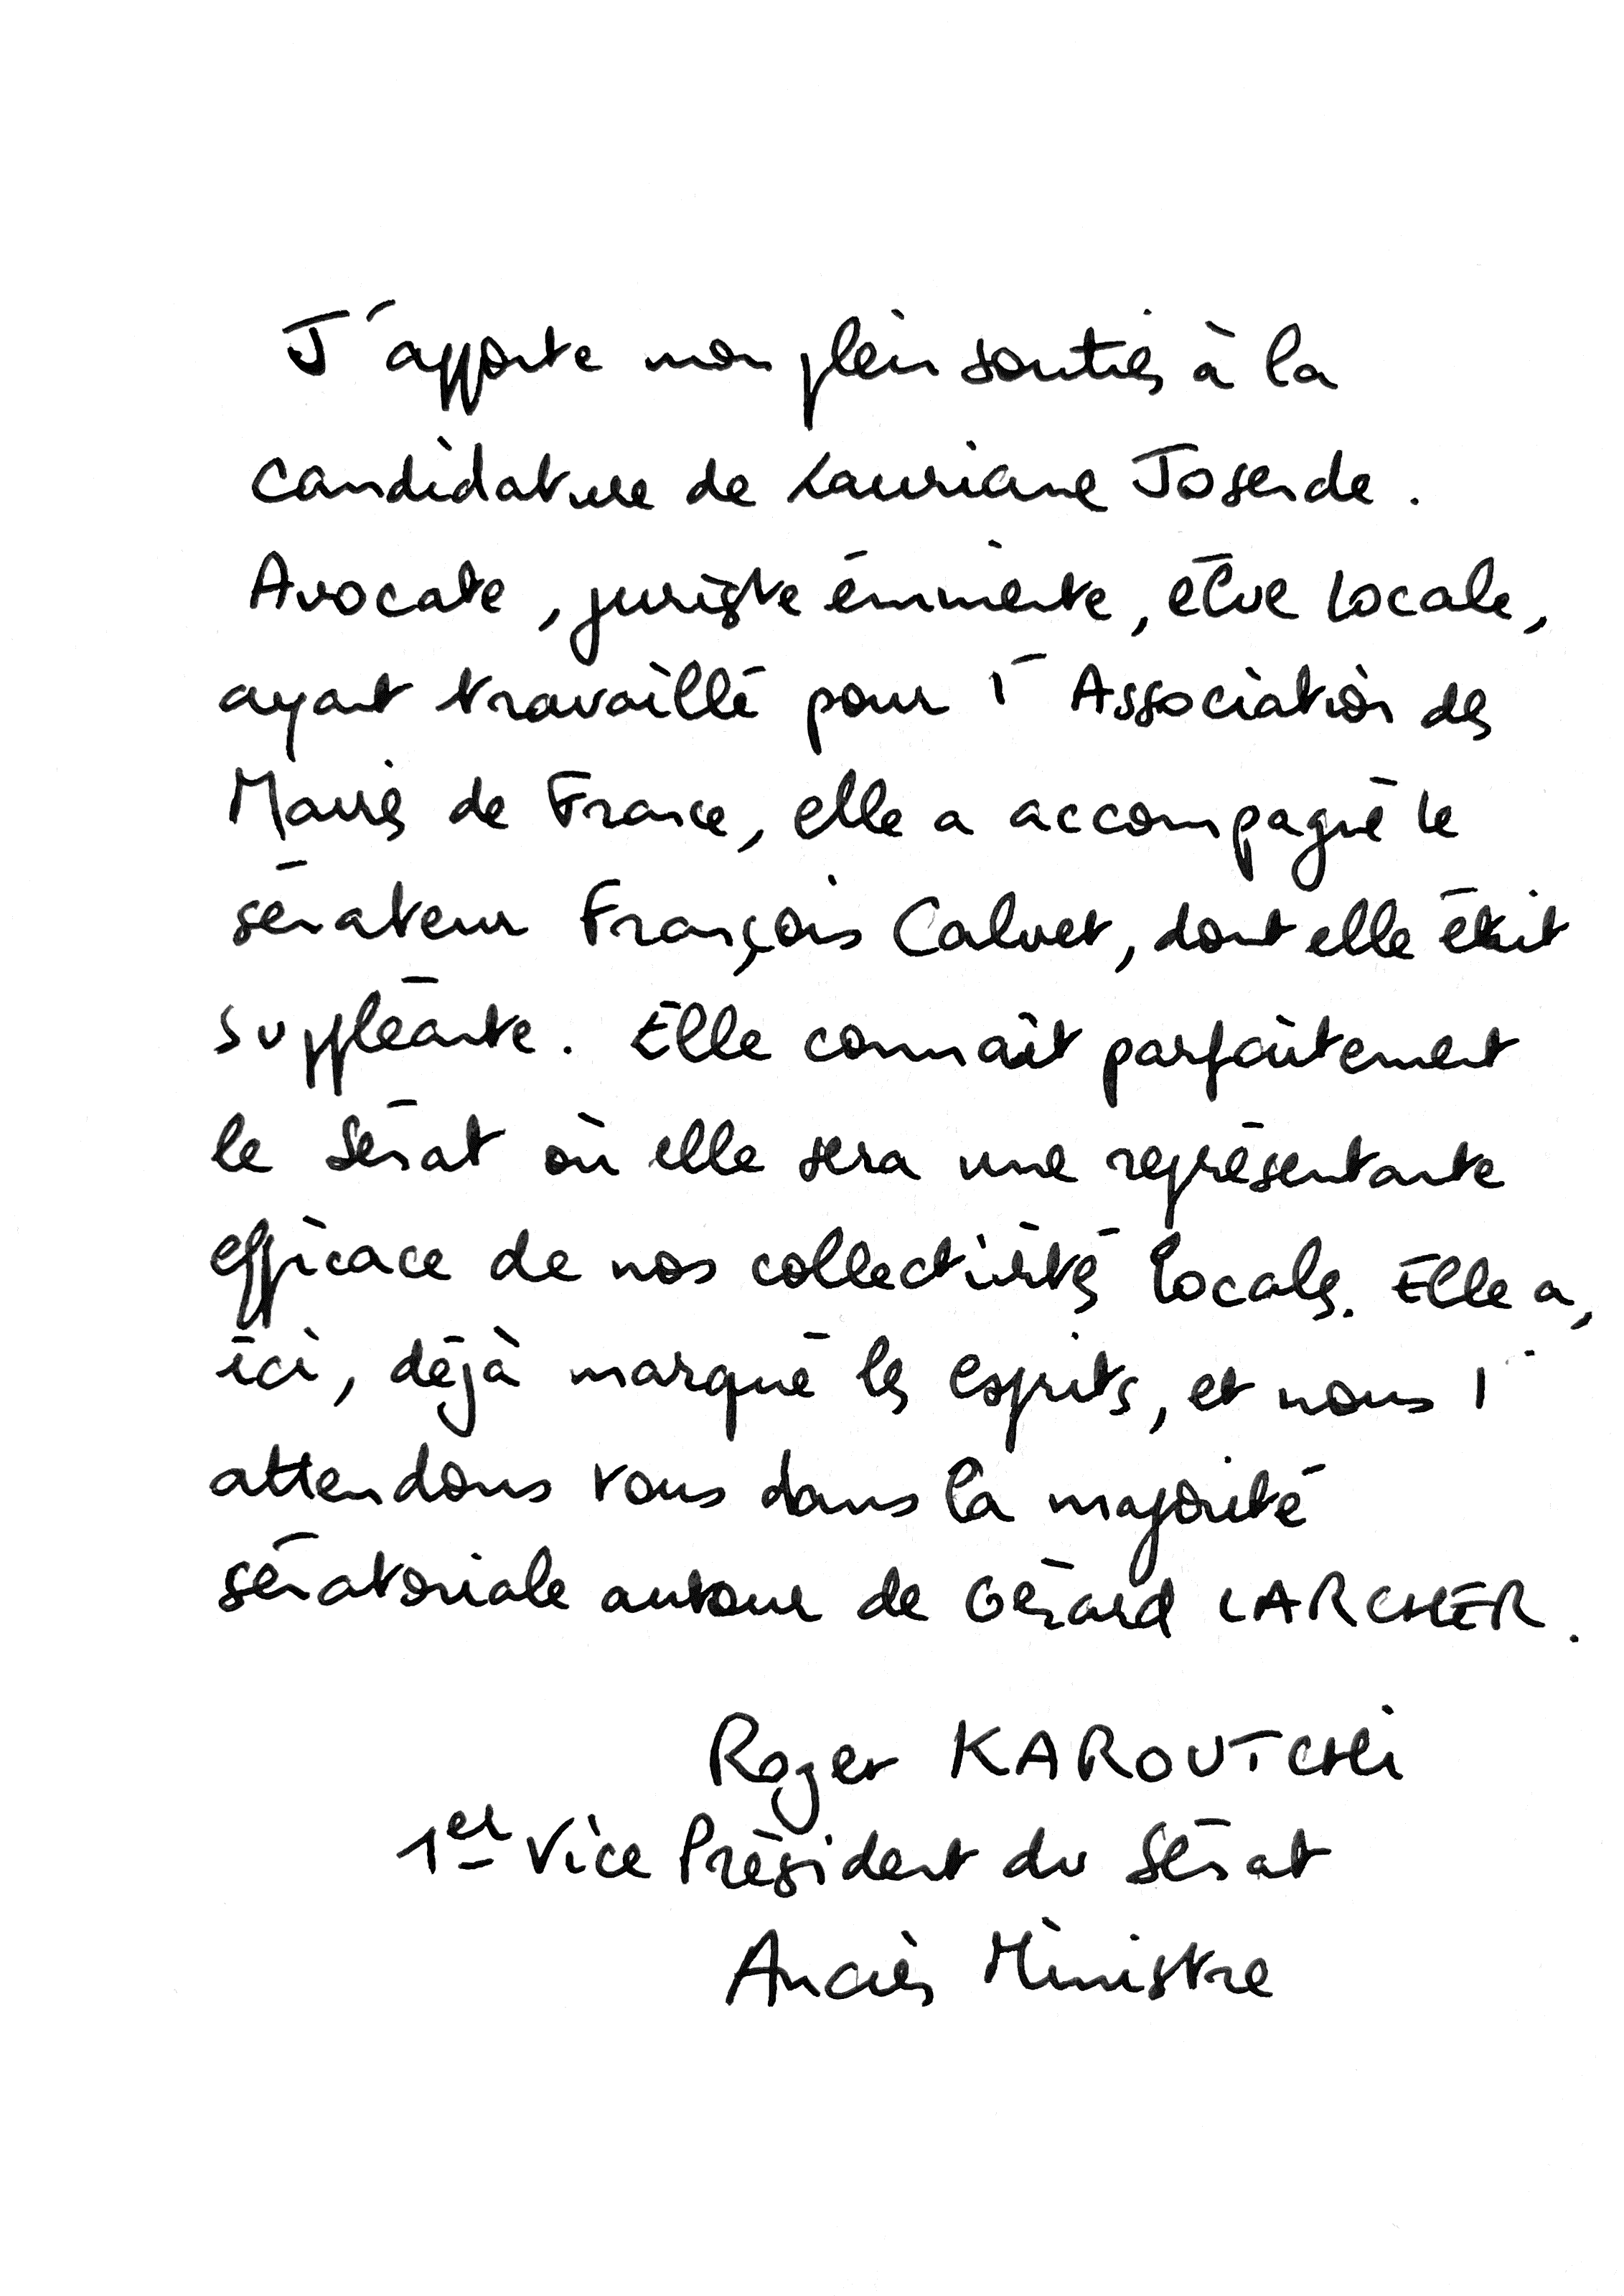 J'apporte mon plein soutien à la
candidature de Lauriane Josende.
Avocate, juriste éminente, élue locale,
ayant travaillé pour l'Association des
Maires de France, elle a accompagné le
sénateur François Calvet, dont elle était
suppléante. Elle connaît parfaitement
le Sénat où elle sera une représentante
efficace de nos collectivités locales. Elle a,
ici, déjà marqué les esprits, et nous l'
attendons tous dans la majorité
sénatoriale autour de Gérard LARCHER.
Roger KAROUTCHI
1er Vice Président du Sénat
Ancien Ministre